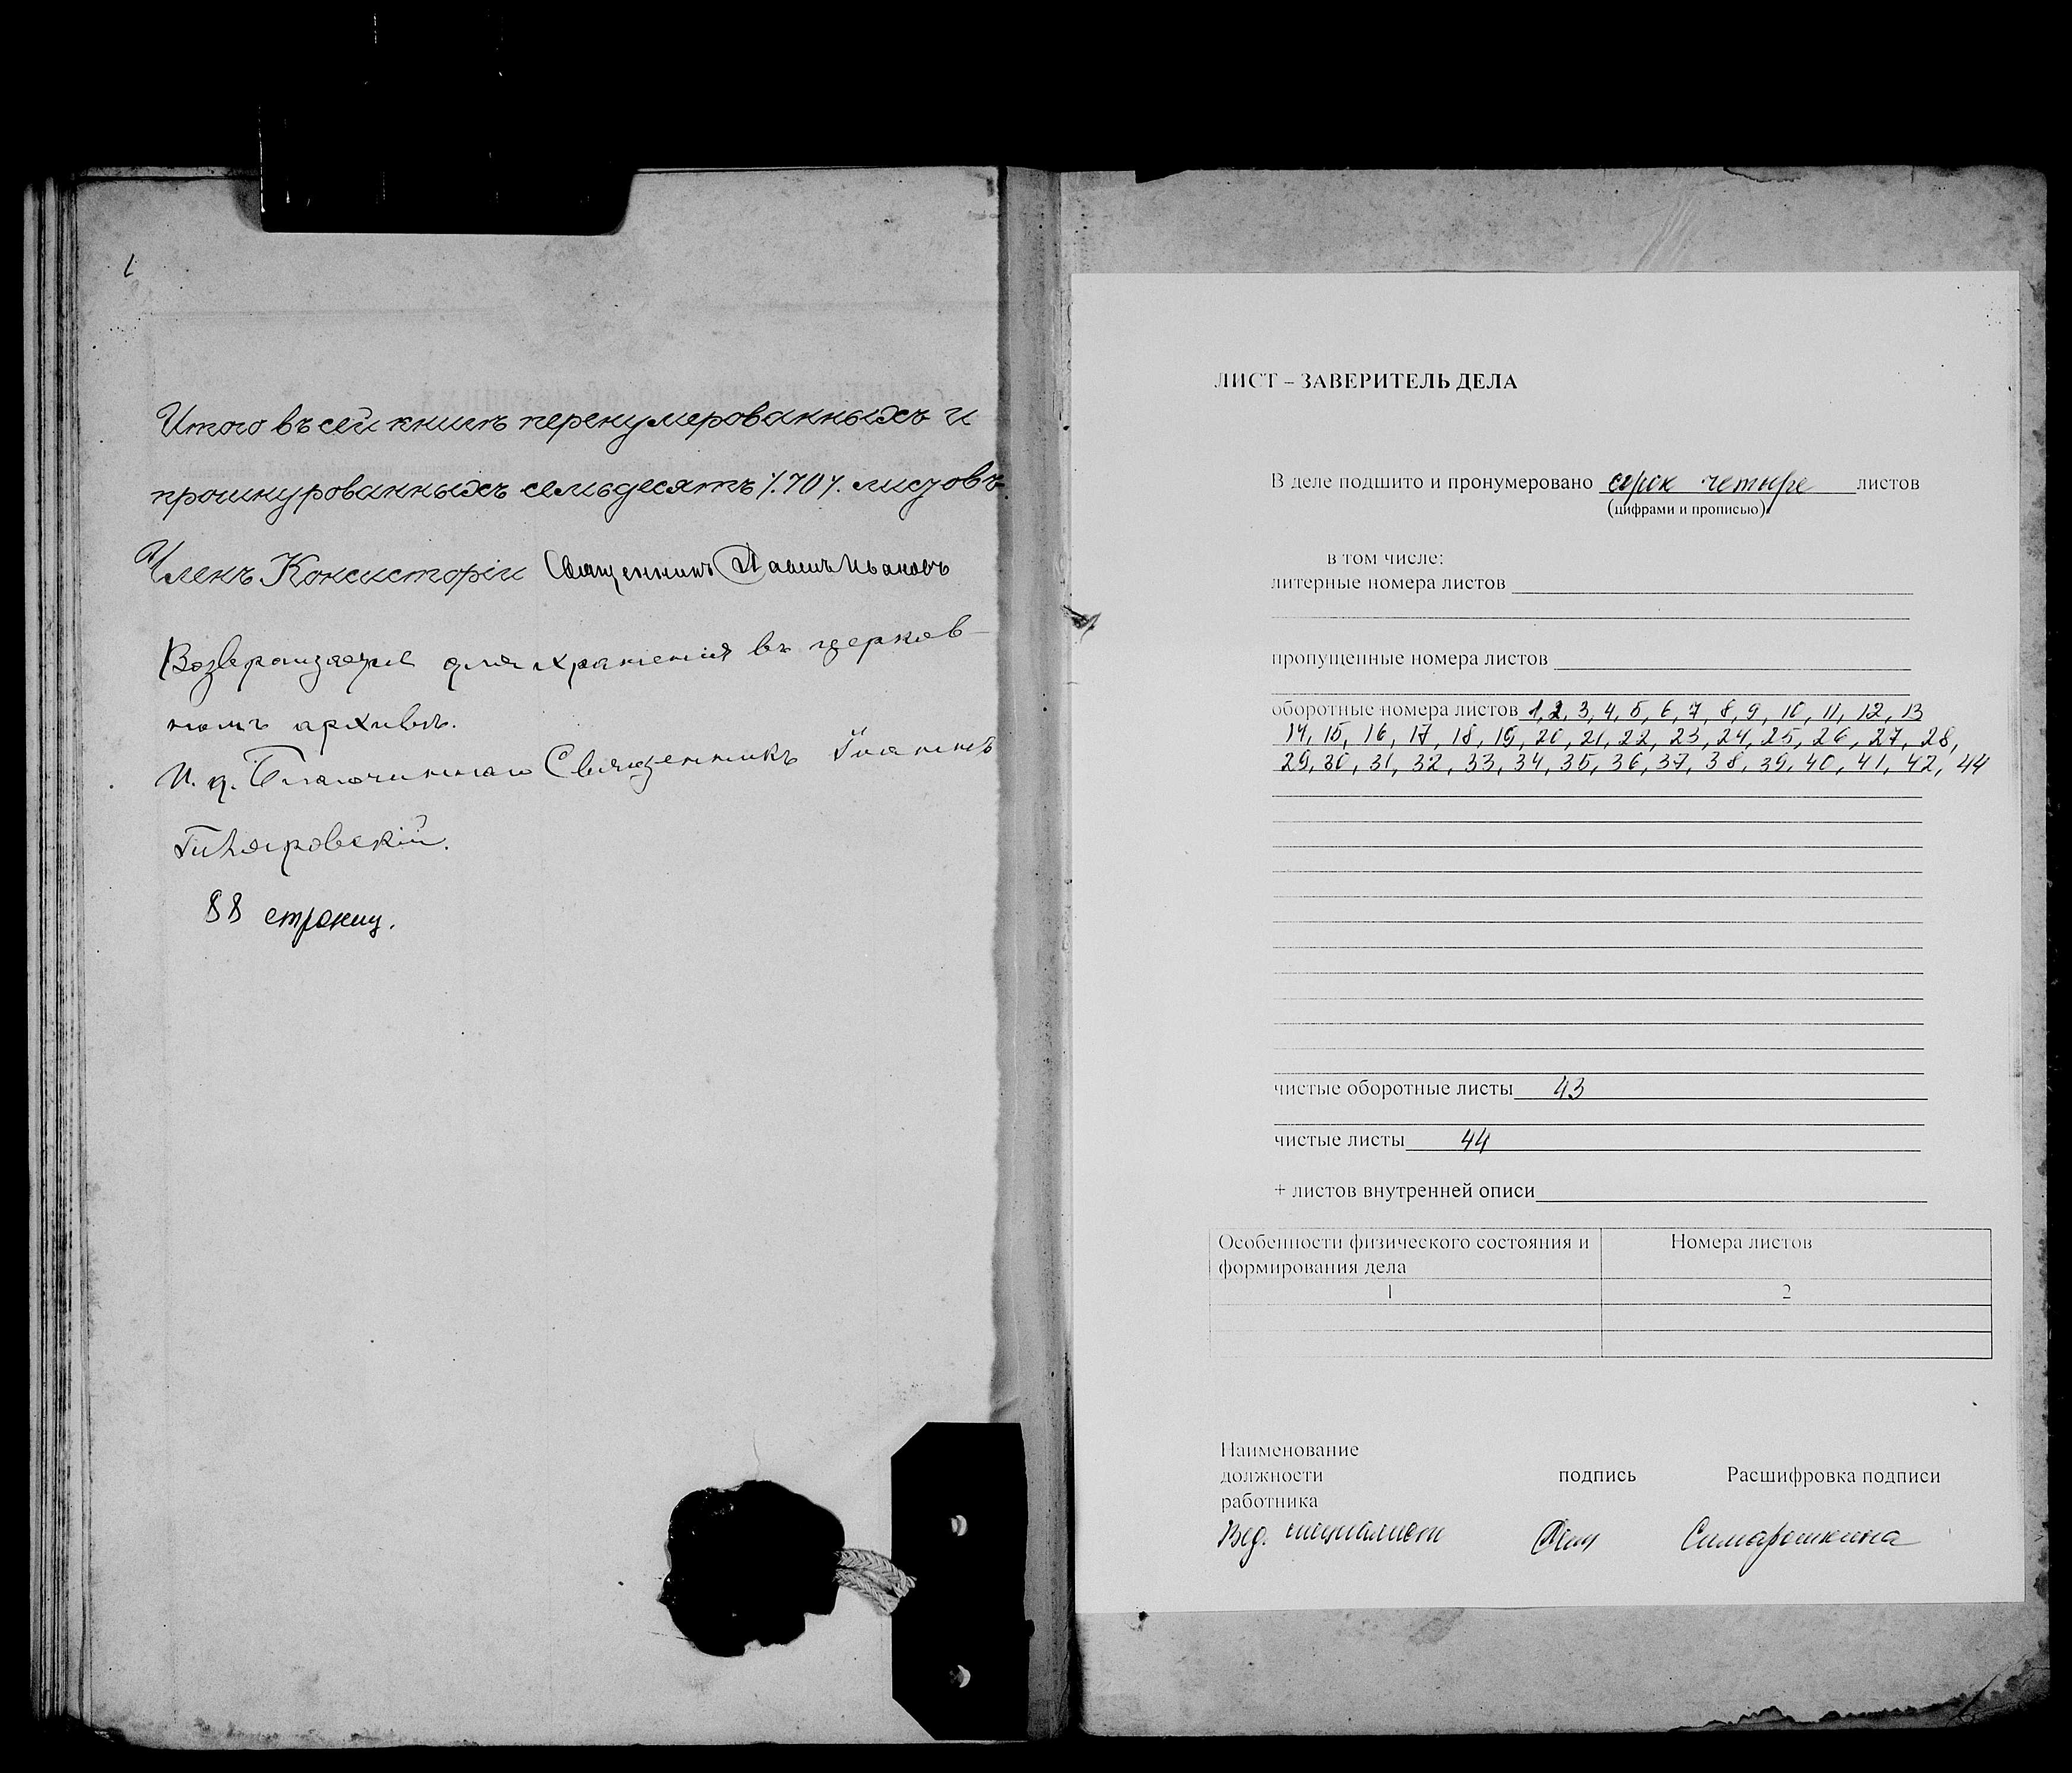 Итого въ сей книгѣ перенумерованныхъ и
прошнурованныхъ семьдесятъ /.70/. листовъ
Членъ Консисторіи Священникъ Павелъ Ивановъ
Возвращается для храненія въ церков-
номъ архивѣ.
И. д. Благочиннаго Священникъ Іоаннъ
Гиляровскій.
88 страниц.
ЛИСТ – ЗАВЕРИТЕЛЬ ДЕЛА
В деле подшито и пронумеровано сорок четыре листов
(цифрами и прописью)
в том числе:
литерные номера листов
пропущенные номера листов
оборотные номера листов 1, 2, 3, 4, 5, 6, 7, 8, 9, 10, 11, 12, 13
14, 15, 16, 17, 18, 19, 20, 21, 22, 23, 24, 25, 26, 27, 28,
29, 30, 31, 32, 33, 34, 35, 36, 37, 38, 39, 40, 41, 42, 44
чистые оборотные листы 43
чистые листы 44
+ листов внутренней описи
Особенности физического состояния и Номера листов
формирования дела
1 2
Наименование
должности подпись Расшифровка подписи
работника
Вед. специалист Симарошкина